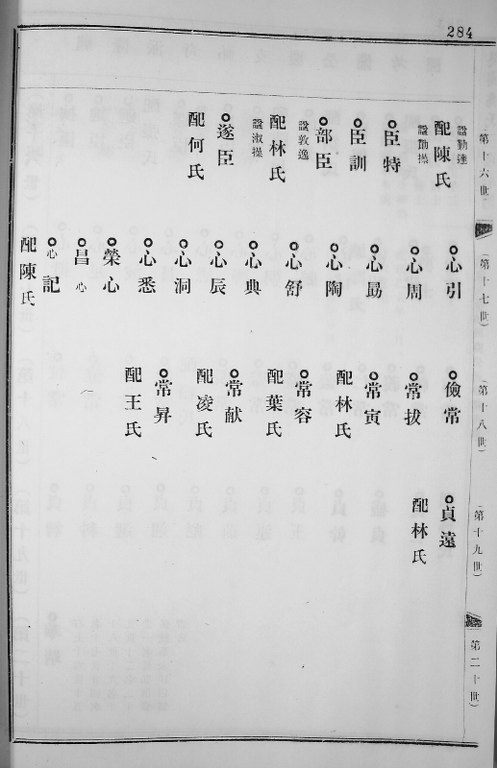 284
第十六世
(第十七世)
(第十八世)
(第十九世)
第二十世)
諡勤達
配陳氏
諡勤操
臣特
臣訓
部臣
諡敦逸
配林氏
諡淑操
遂臣
配何氏
心引
心周
心勗
心陶
心舒
心典
心辰
心洞
心悉
榮心
昌心
心記
配陳氏
儉常
常拔
常寅
配林氏
常容
配葉氏
常献
配凌氏
常昇
配王氏
貞遠
配林氏